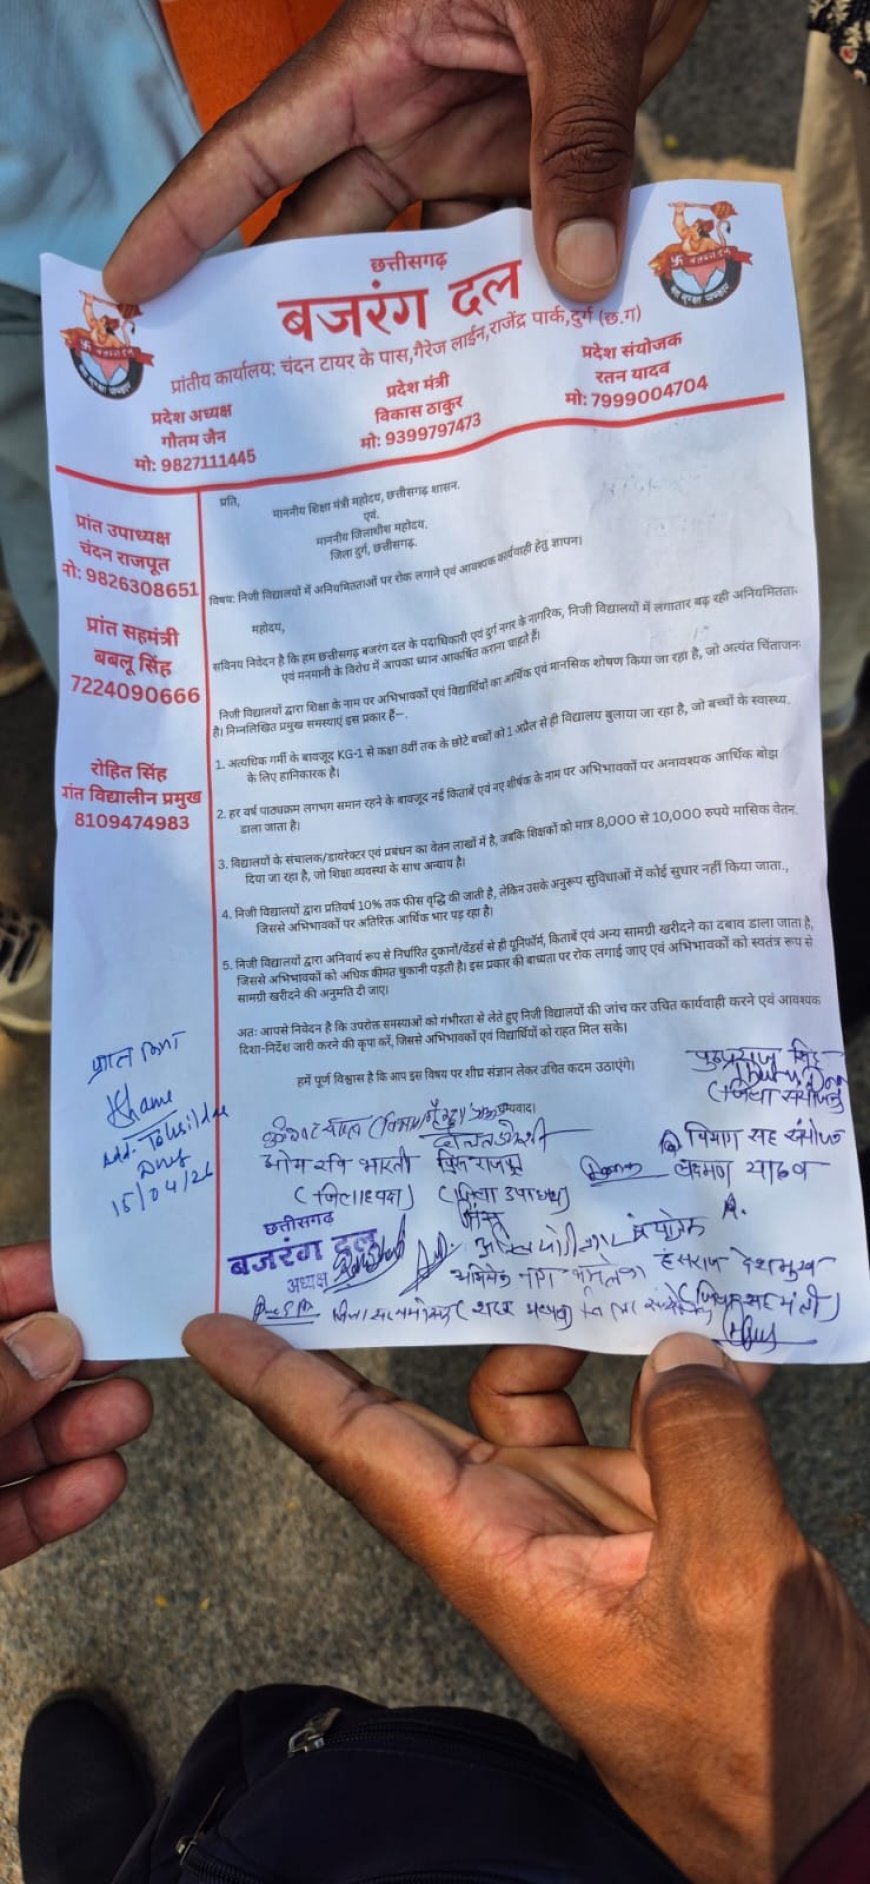 छत्तीसगढ़
बजरंग दल
प्रांतीय कार्यालय: चंदन टायर के पास,गैरेज लाईन,राजेंद्र पार्क,दुर्ग (छ.ग)
प्रदेश अध्यक्ष
गौतम जैन
मो: 9827111445
प्रदेश मंत्री
विकास ठाकुर
मो: 9399797473
प्रदेश संयोजक
रतन यादव
मो: 7999004704
प्रांत उपाध्यक्ष
चंदन राजपूत
मो: 9826308651
प्रांत सहमंत्री
बबलू सिंह
7224090666
रोहित सिंह
प्रांत विद्यालीन प्रमुख
8109474983
प्रति,
माननीय शिक्षा मंत्री महोदय, छत्तीसगढ़ शासन.
एवं.
माननीय जिलाधीश महोदय.
जिला दुर्ग, छत्तीसगढ़.
विषय: निजी विद्यालयों में अनियमितताओं पर रोक लगाने एवं आवश्यक कार्यवाही हेतु ज्ञापन।
महोदय,
सविनय निवेदन है कि हम छत्तीसगढ़ बजरंग दल के पदाधिकारी एवं दुर्ग नगर के नागरिक, निजी विद्यालयों में लगातार बढ़ रही अनियमितता-
एवं मनमानी के विरोध में आपका ध्यान आकर्षित कराना चाहते हैं।
निजी विद्यालयों द्वारा शिक्षा के नाम पर अभिभावकों एवं विद्यार्थियों का आर्थिक एवं मानसिक शोषण किया जा रहा है, जो अत्यंत चिंताजन-
है। निम्नलिखित प्रमुख समस्याएं इस प्रकार हैं—.
1. अत्यधिक गर्मी के बावजूद KG-1 से कक्षा 8वीं तक के छोटे बच्चों को 1 अप्रैल से ही विद्यालय बुलाया जा रहा है, जो बच्चों के स्वास्थ्य.
के लिए हानिकारक है।
2. हर वर्ष पाठ्यक्रम लगभग समान रहने के बावजूद नई किताबें एवं नए शीर्षक के नाम पर अभिभावकों पर अनावश्यक आर्थिक बोझ
डाला जाता है।
3. विद्यालयों के संचालक/डायरेक्टर एवं प्रबंधन का वेतन लाखों में है, जबकि शिक्षकों को मात्र 8,000 से 10,000 रुपये मासिक वेतन.
दिया जा रहा है, जो शिक्षा व्यवस्था के साथ अन्याय है।
4. निजी विद्यालयों द्वारा प्रतिवर्ष 10% तक फीस वृद्धि की जाती है, लेकिन उसके अनुरूप सुविधाओं में कोई सुधार नहीं किया जाता.,
जिससे अभिभावकों पर अतिरिक्त आर्थिक भार पड़ रहा है।
5. निजी विद्यालयों द्वारा अनिवार्य रूप से निर्धारित दुकानों/वेंडर्स से ही यूनिफॉर्म, किताबें एवं अन्य सामग्री खरीदने का दबाव डाला जाता है,
जिससे अभिभावकों को अधिक कीमत चुकानी पड़ती है। इस प्रकार की बाध्यता पर रोक लगाई जाए एवं अभिभावकों को स्वतंत्र रूप से
सामग्री खरीदने की अनुमति दी जाए।
अतः आपसे निवेदन है कि उपरोक्त समस्याओं को गंभीरता से लेते हुए निजी विद्यालयों की जांच कर उचित कार्यवाही करने एवं आवश्यक
दिशा-निर्देश जारी करने की कृपा करें, जिससे अभिभावकों एवं विद्यार्थियों को राहत मिल सके।
हमें पूर्ण विश्वास है कि आप इस विषय पर शीघ्र संज्ञान लेकर उचित कदम उठाएंगे।
धन्यवाद।
Add. Tahsildar
Durg
15/04/26
(जिला संयोजक)
विभाग सह संयोजक
लक्ष्मण यादव
ओम रवि भारती
(जिलाध्यक्ष)
(जिला उपाध्यक्ष)
छत्तीसगढ़
बजरंग दल
अध्यक्ष
संयोजक
हंसराज देशमुख